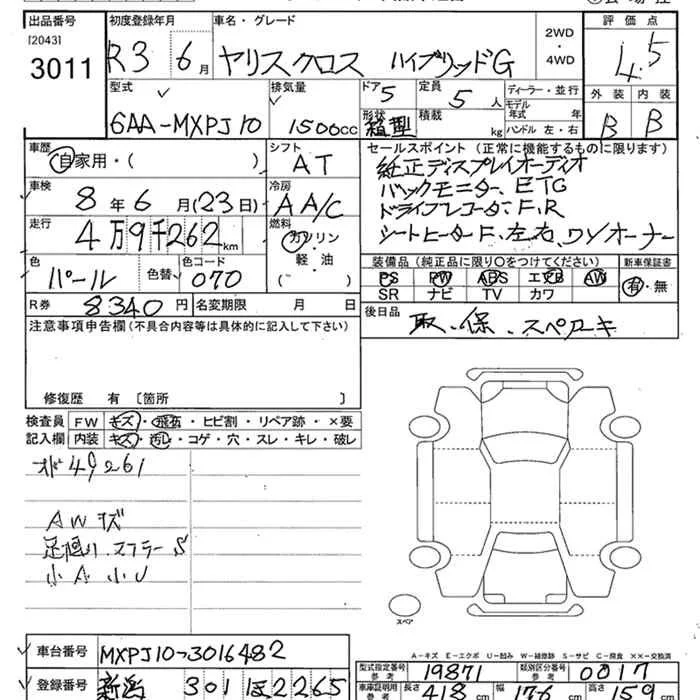 出品番号 初度登録年月 車名・グレード 評価点
[2043]
3011
R3 6月 ヤリスクロス ハイブリッドG 2WD・4WD 4.5
型式 排気量 ドア 5 定員 5人 ディーラー・並行 外装 内装
6AA-MXPJ10 1500cc 形状 箱型 積載 kg モデル年式 年 ハンドル 左・右 B B
車歴 自家用・( ) シフト AT
セールスポイント(正常に機能するものに限ります)
純正ディスプレイオーディオ
バックモニター、ETC
ドライブレコーダ、F、R
シートヒーターF、左右、ワンオーナー
車検 8年6月(23日) 冷房 AA/C
走行 4万9千262km 燃料 ガソリン 軽・油 ( )
色 パール 色替 色コード 070
装備品(純正品に限り○をつけてください) 新車保証書
PS PW ABS エアB AW 有・無
SR ナビ TV カワ
R券 8340円 名変期限 月 日
後日品 取・保・スペアキ
注意事項申告欄(不具合内容等は具体的に記入して下さい)
修復歴 有 [箇所 ]
検査員 FW キズ・飛石・ヒビ割・リペア跡・×要
記入欄 内装 キズ・汚レ・コゲ・穴・スレ・キレ・破レ
49261
AWキズ
足廻り、マフラーS
小A小U
スペア
車台番号 MXPJ10-3016482
登録番号 新潟 301 ほ 2265
A-キズ E-エクボ U-凹み W-補修跡 S-サビ C-腐食 ××-交換済
型式指定番号 参考 19871 類別区分番号 参考 0017
車庫証明用 参考 長さ 418 cm 幅 176 cm 高さ 159 cm